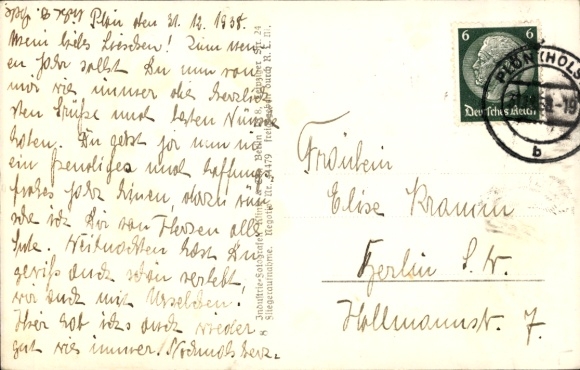 Plön den 31.12.1938.
Mein liebes Lieschen! Zum neu-
en Jahr sollst Du nun von
mir wie immer die herzlich-
sten Grüße und besten Wünsche
haben. Du gehst ja nun in
ein freudiges und hoffnungs
frohes Jahr hinein, dazu wün-
sche ich Dir von Herzen alles
Gute. Weihnachten hast Du
gewiß auch schön verlebt,
wir auch mit Urselchen.
Hier hat sichs auch wieder
gut wie immer! Nochmals herz-
8 Industrie-Fotografen Klinke & Co. Berlin W 8, Leipziger Str. 24
Fliegeraufnahme. Negativ Nr. 14479 freigegeben durch R.L.M.
6 6
Deutsches Reich
PLÖN (HOLST)
b
Fräulein
Elise Kramm
Berlin S.W.
Hollmannstr. 7.